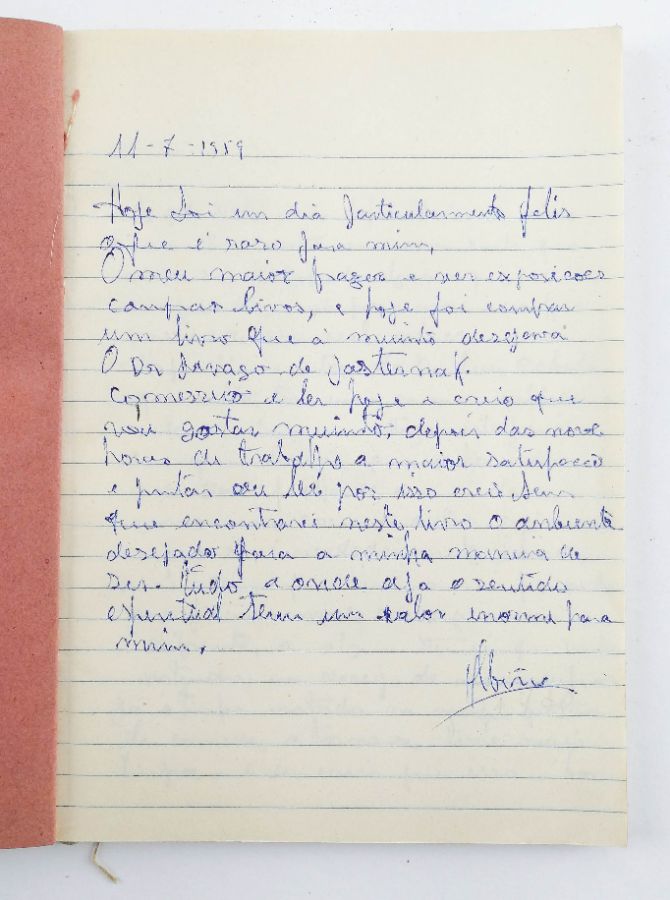 11-7-1959
Hoje foi um dia particularmente felis
o que é raro para mim,
O meu maior prazer e ver exposicoes
comprar livros, e hoje foi comprar
um livro que á muinto desejava
O Dr Jivago de Pasternak.
comessei e ler hoje e creio que
vou gostar muinto, depois das nove
horas de trabalho a maior satisfacão
e pintar ou ler por isso creio bem
que encontrarei neste livro o ambiente
desejador para a minha maneira de
ser. tudo a onde aja o sentido
espiritual tem um valor enorme para
mim.